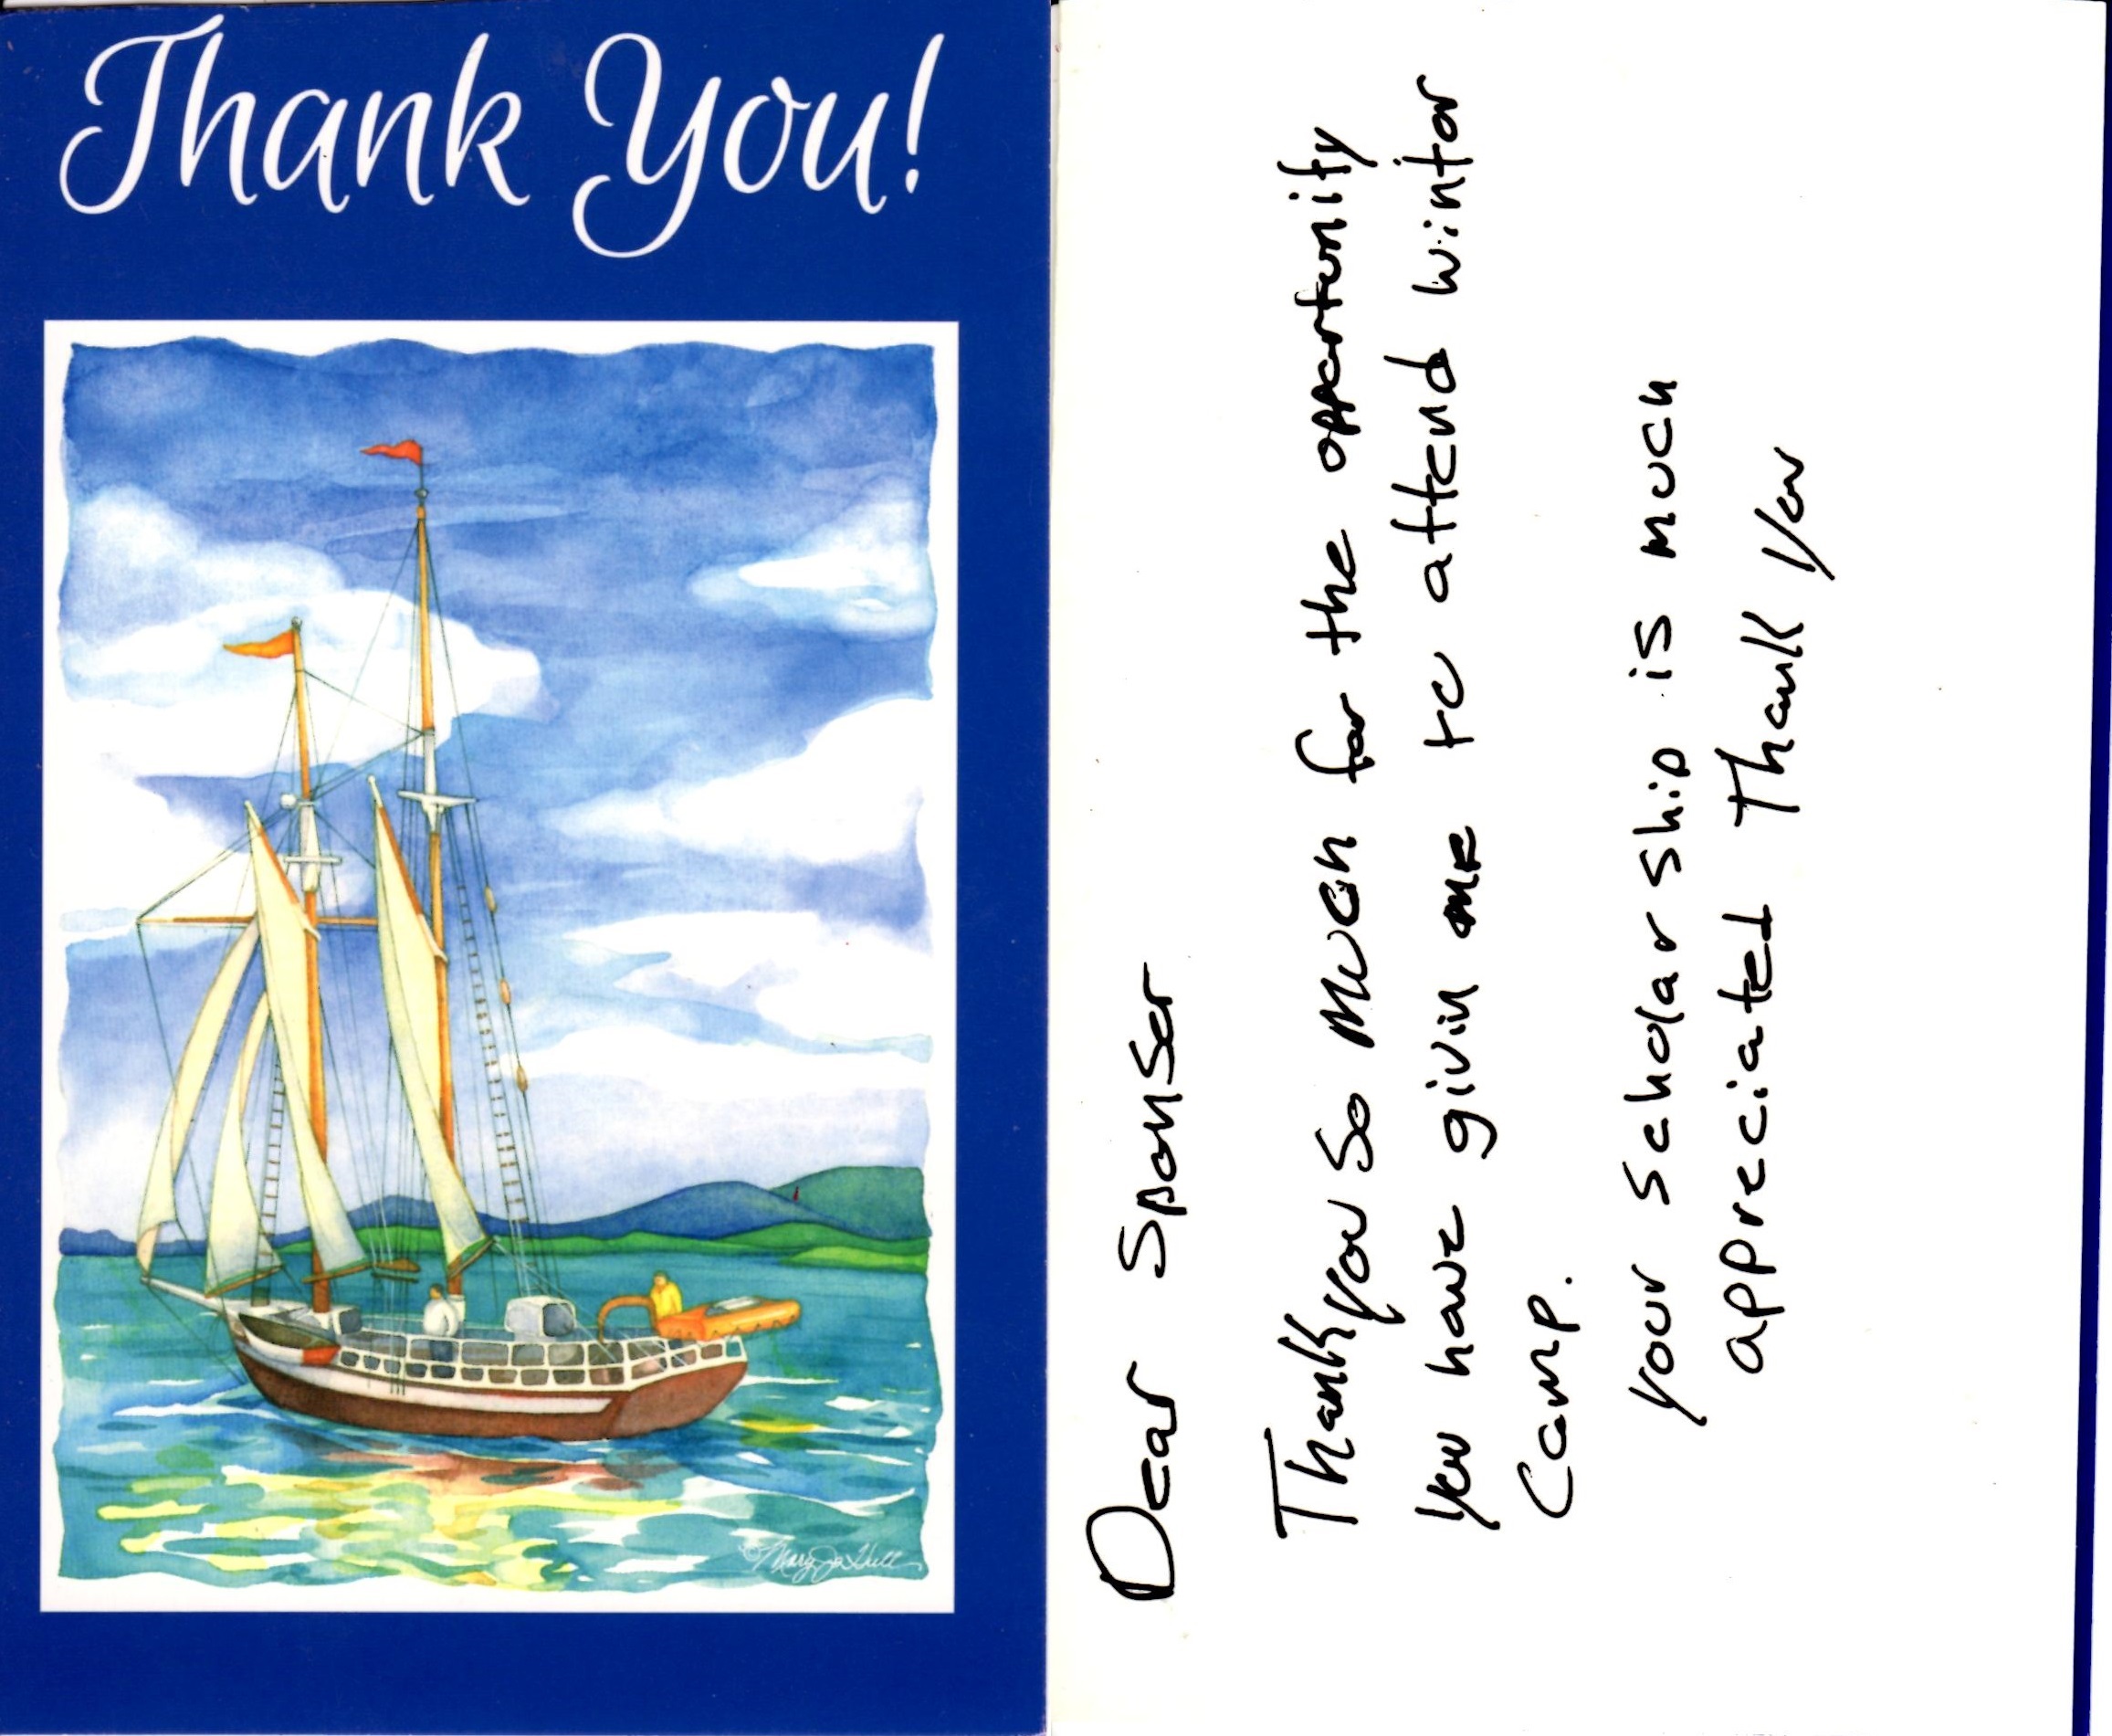 Thank You!
© Mary Jo Hull
Dear Sponser
Thank you so much for the opportunity
you have givin me to attend wintor
Camp.
your scholar ship is much
appreciated Thank you